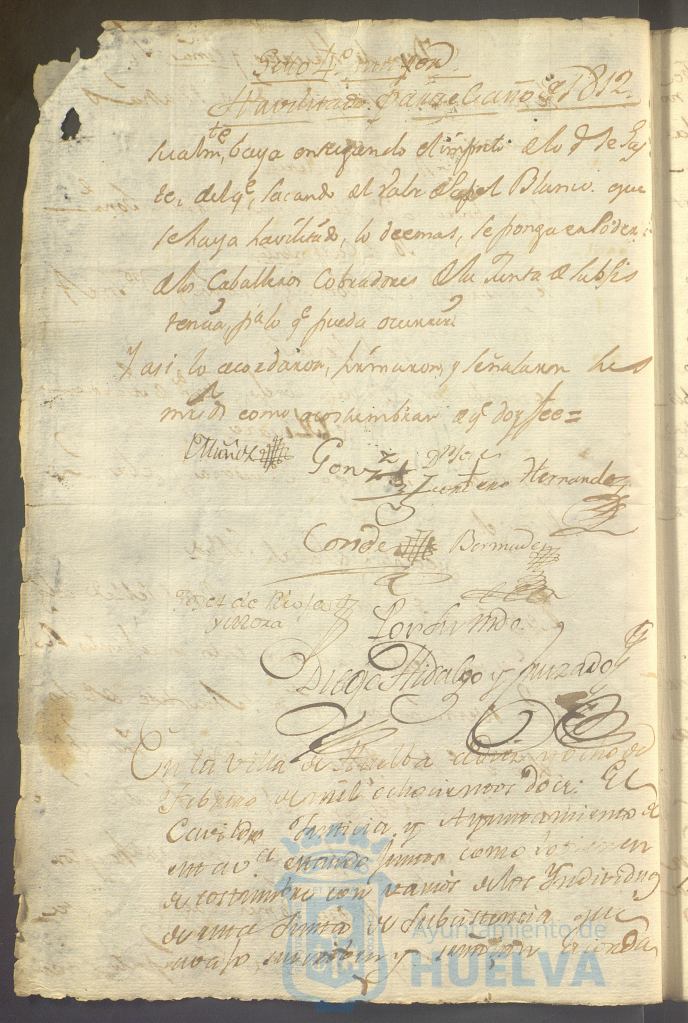 Sello 4º mayor
Havilitado para el año de 1812.
sualmte, baya entregando el importe de lo q se gas
te, del qe, sacando el valr del papel Blanco que
se haya havilitado, lo demas, se ponga en Poder
de los Caballeros Cobradores de la Junta de Subsis
tencia, pa lo qe pueda ocurrir
Y asi lo acordaron, firmaron, y señalaron
mrds como acostumbran de qe doy fee =
Muñoz Gonz Centeno Hernandez
Conde Bermudez
Josef de Rioja
y Mora
Por su mdo.
Diego Hidalgo y Juzado
En la villa de Huelba a diez y ocho de
Febrero de mil ochocientos doce: El
Cavildo Justicia y Ayuntamiento de
esta va estando juntos como lo tienen
de costumbre con varios de los Individuos
de una Junta de Subsistencia que
avajo suscriben y
Ayuntamiento de
HUELVA